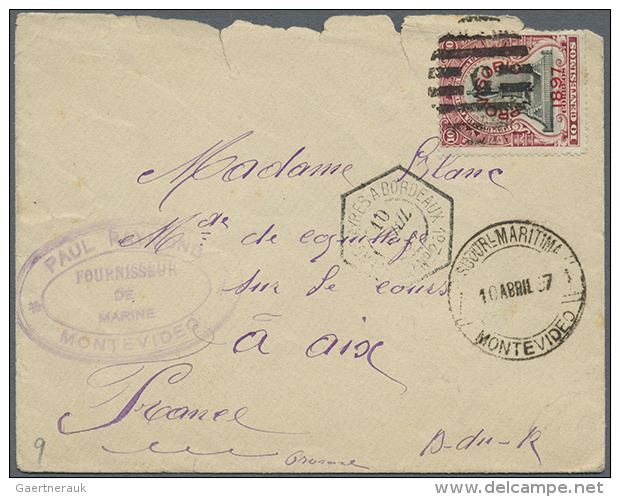 PROVISORIO
1897
CORREOS
10 CENTESIMOS
Madame Blanc
Mde de coquillages
sur le cours
à aix
France
B-du-R
PAUL
FOURNISSEUR
DE
MARINE
MONTEVIDEO
AYRES A BORDEAUX
10
SUCURL MARITIMA
10 ABRIL 97
MONTEVIDEO
9
Gaertnerauk
www.delcampe.net